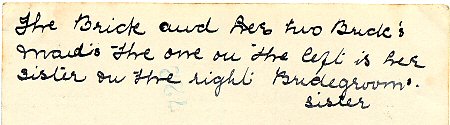 The Brick and her two Brick's
maids The one on the left is her
sister on the right Bridegrooms.
sister